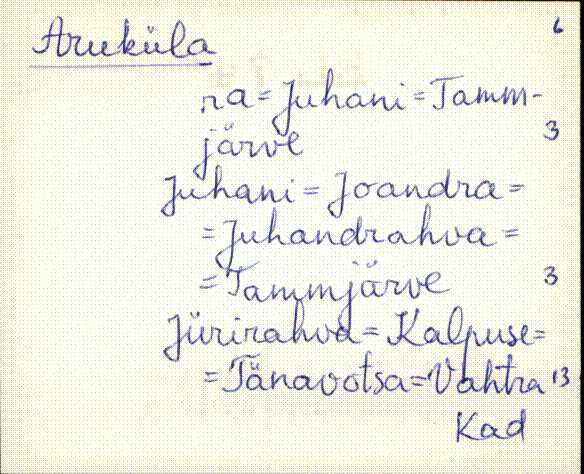 6
Aruküla
ra = Juhani = Tamm-
järve 3
Juhani = Joandra =
= Juhandrahva =
= Tammjärve 3
Jürirahva = Kalpuse =
= Tänavotsa = Vahtra 13
Kad